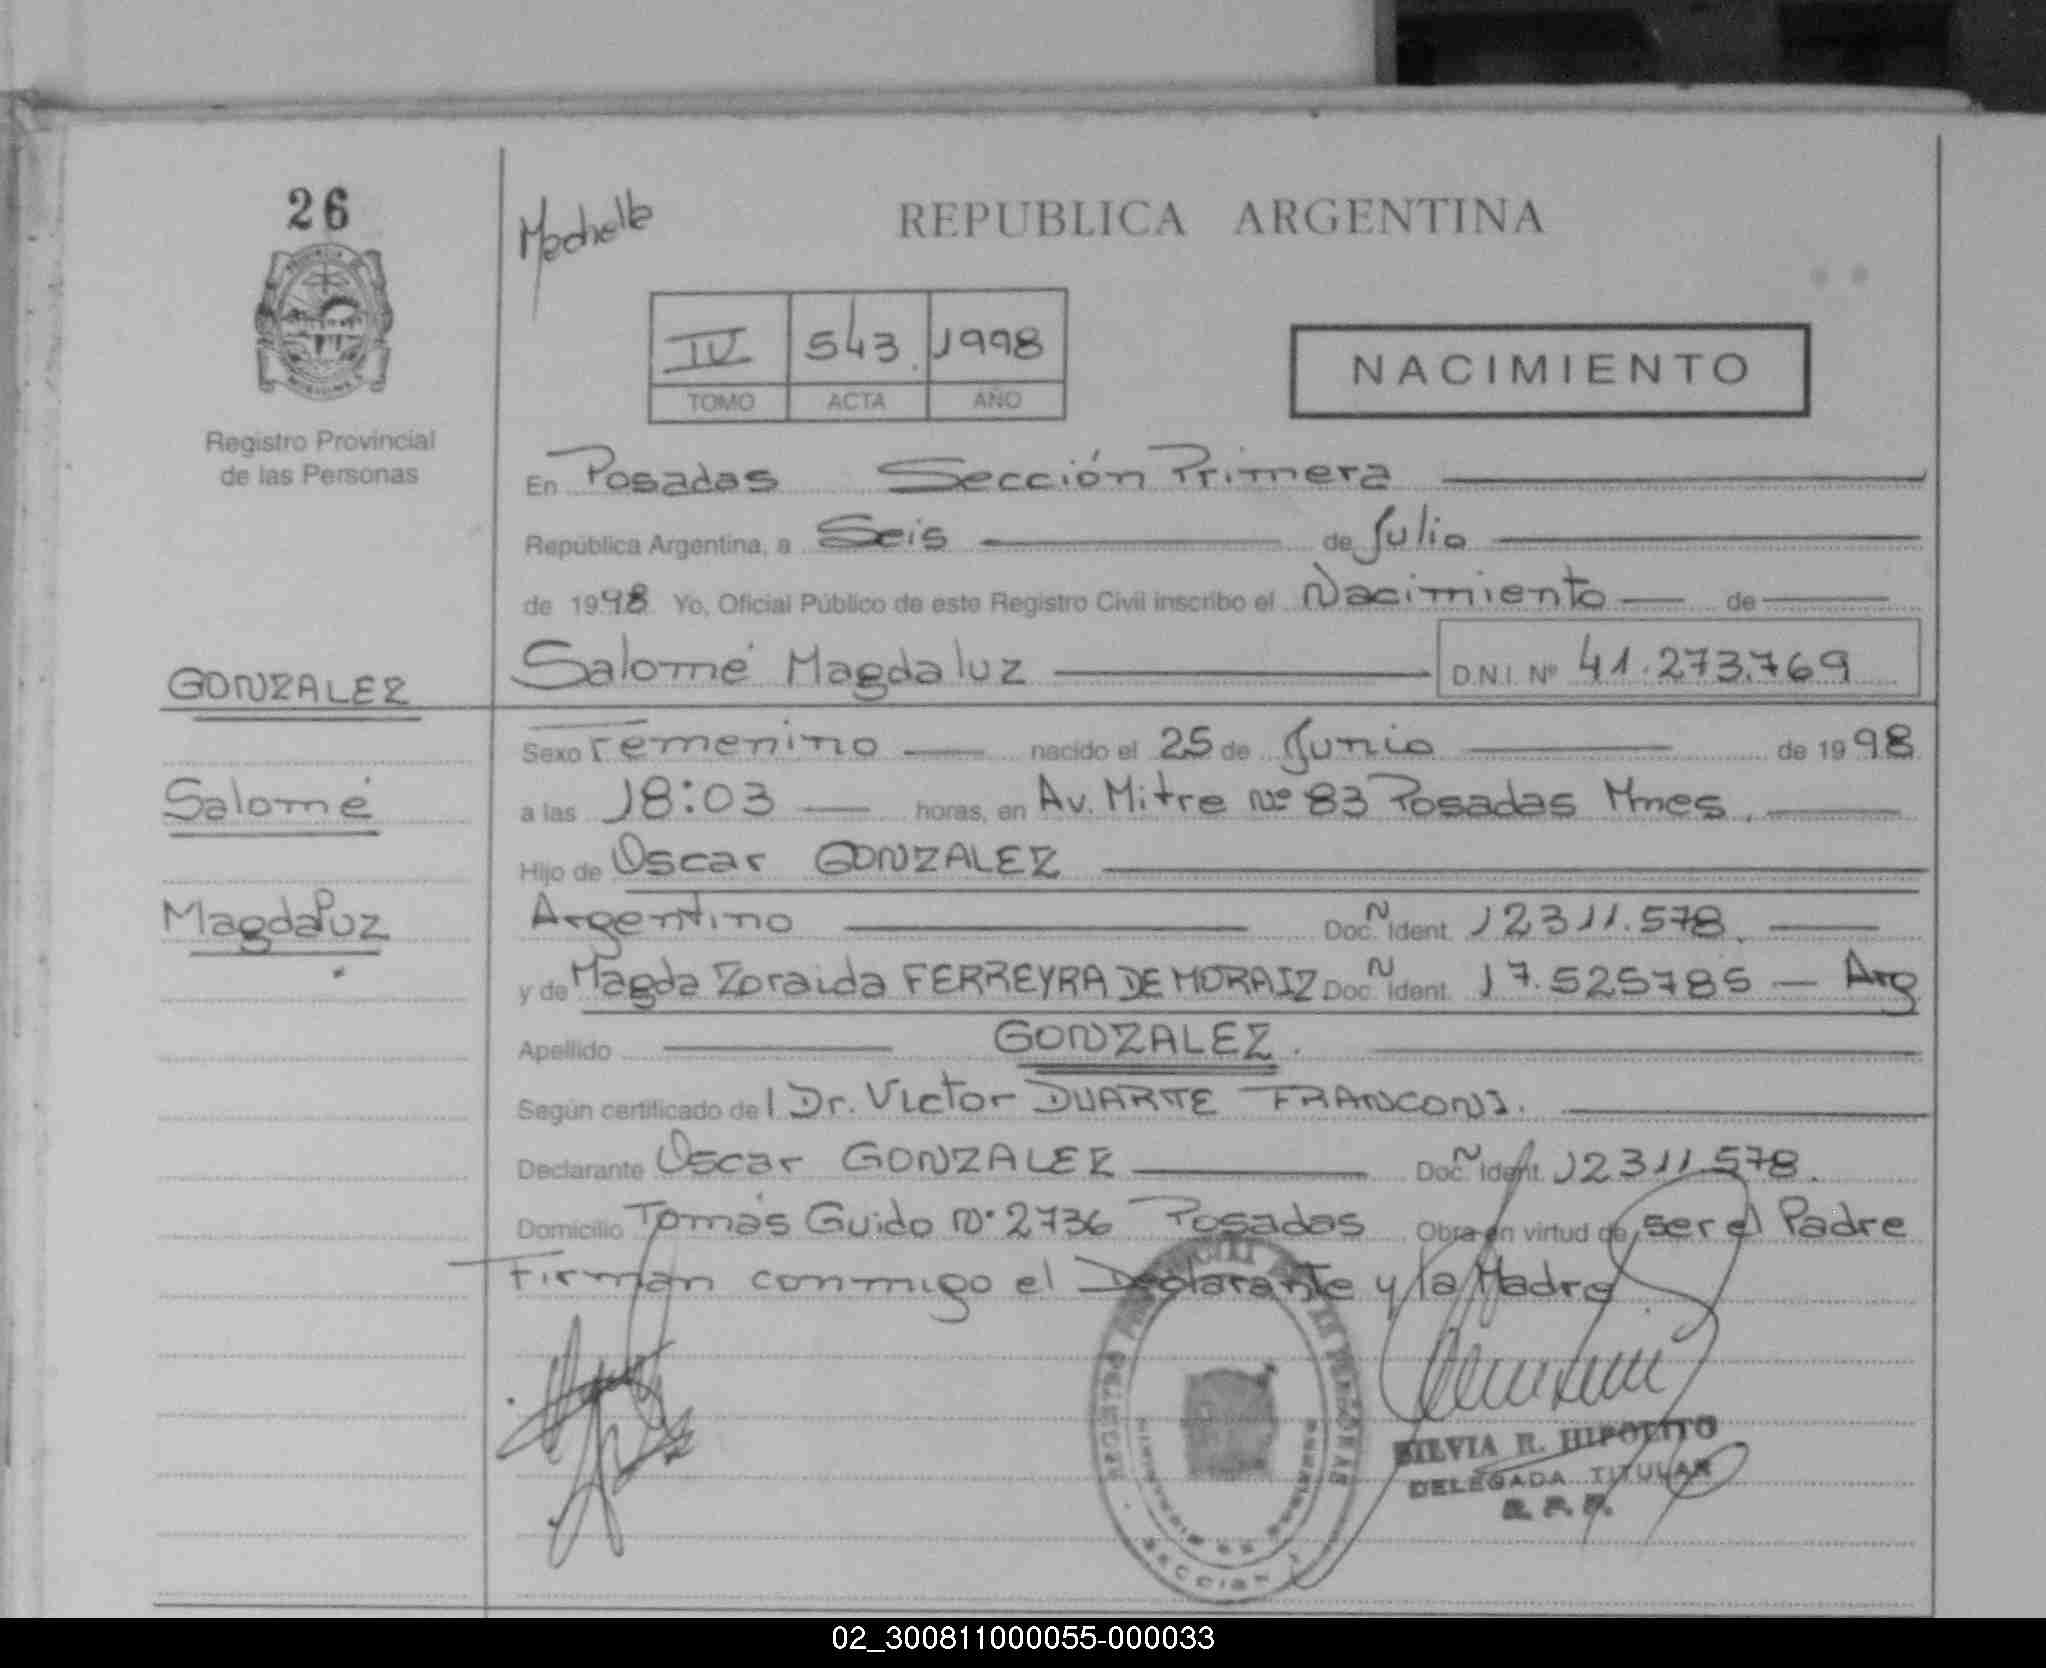 26
REPUBLICA ARGENTINA
IV 543. 1998
TOMO ACTA AÑO
NACIMIENTO
Registro Provincial
de las Personas
En Posadas Sección Primera
República Argentina, a Seis de Julio
de 1998 Yo, Oficial Público de este Registro Civil inscribo el Nacimiento de
GONZALEZ
Salomé Magdaluz D.N.I. Nº 41.273.769
Sexo Femenino nacido el 25 de Junio de 1998
Salomé
a las 18:03 horas, en Av. Mitre Nº 83 Posadas Mnes.
Hijo de Oscar GONZALEZ
Magdaluz
Argentino Doc.N Ident. 12311.578.
y de Magda Zoraida FERREYRA DE MORAIZ Doc.N Ident. 17.525785 - Arg
Apellido GONZALEZ.
Según certificado del Dr. Victor DUARTE FRANCONI.
Declarante Oscar GONZALEZ Doc.N Ident. 12311.578.
Domicilio Tomás Guido Nº 2736 Posadas Obra en virtud de ser el Padre
Firman conmigo el Declarante y la Madre
SILVIA R. HIPOLITO
DELEGADA TITULAR
R. P. P.
02_300811000055-000033